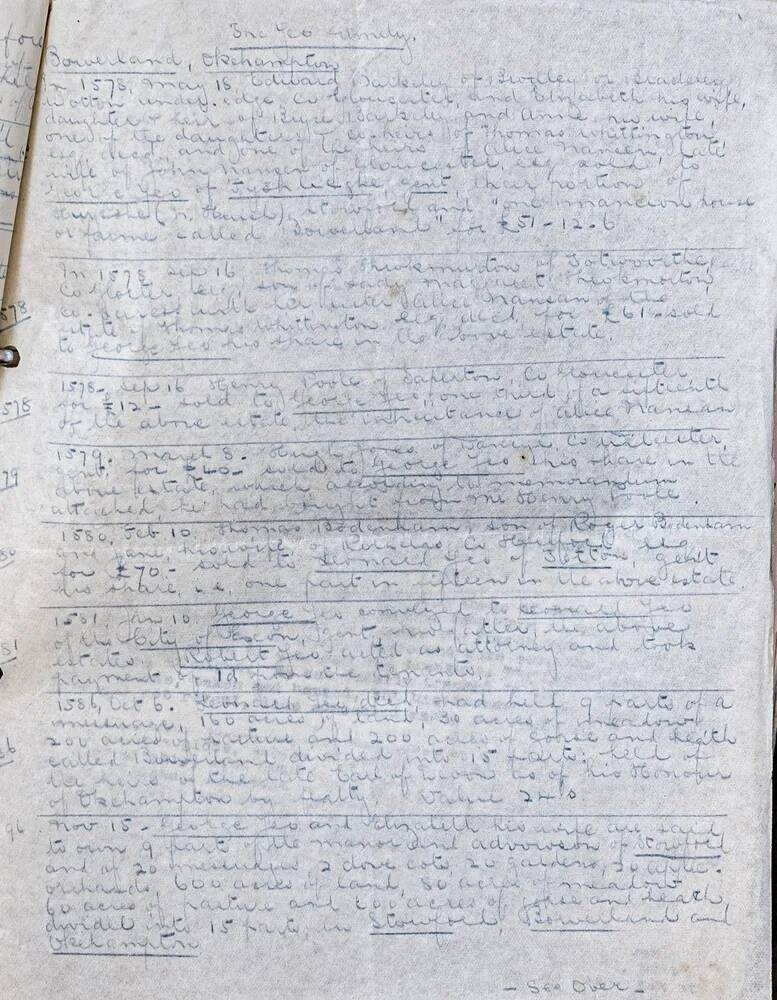 The Yeo Family.
Bowerland, Okehampton
In 1578, May 18, Edward Barkeley of Bradley or
Wotton under edge, Co Gloucester, and Elizabeth his wife,
daughter & heir of Barkeley and Anne his wife,
one of the daughters & co-heirs of Thomas Whittington
esq decd, and one of the heirs of Alice Nansan, late
wife of John Nansan of Gloucester, esq, sold to
George Yeo of gent, their portion of
Stowford and "one mancion house
or farme called Bowerland" for £51-12-6
In 1578 Sep 16 Thomas Throkmorton of
Co Gloster, esq, son of Lady Margaret Throkmorton,
co-parcess with her sister Alice Nansan of the
estate of Thomas Whittington esq, decd, for £61- sold
to George Yeo his share in the above estate.
1578- Sep 16 Henry Poole of Saperton, Co Gloucester
for £12- sold to George Yeo, one third of a fifteenth
of the above estate, the inheritance of Alice Nansan
1579. March 8. Hugh Jones of Co
gent, for £40- sold to George Yeo his share in the
above estate, which according to memorandum
attached, he had bought from Mr Henry Poole.
1580, Feb 10. Thomas Bodenham, son of Roger Bodenham
and Jane, his wife of Co Hereford, esq
for £70- sold to Leonard Yeo of gent
his share, i.e, one part in fifteen in the above estate.
1581, Jan 10. George Yeo conveyed to Leonard Yeo
of the City of Exon, gent, his father, the above
estates. Robert Yeo acted as attorney and took
payment of 1d from the tenants.
1586, Oct 6. Leonard Yeo decd, had held 9 parts of a
messuage, 160 acres of land, 30 acres of meadow
200 acres of pasture and 200 acres of gorse and heath
called Bowerland divided into 15 parts: held of
the heirs of the late Earl of Devon as of his Honour
of Okehampton by fealty. Value 24s
Nov 15 - George Yeo and Elizabeth his wife are said
to own 9 part of the manor and advowson of Stowford
and of 20 messuages, 2 dove cots, 20 gardens, 20 apple-
orchards, 600 acres of land, 80 acres of meadow
60 acres of pasture and 600 acres of gorse and heath,
divided into 15 parts, in Stowford, Bowerland and
Okehampton
- See Over -
578
578
79
80
81
6
96